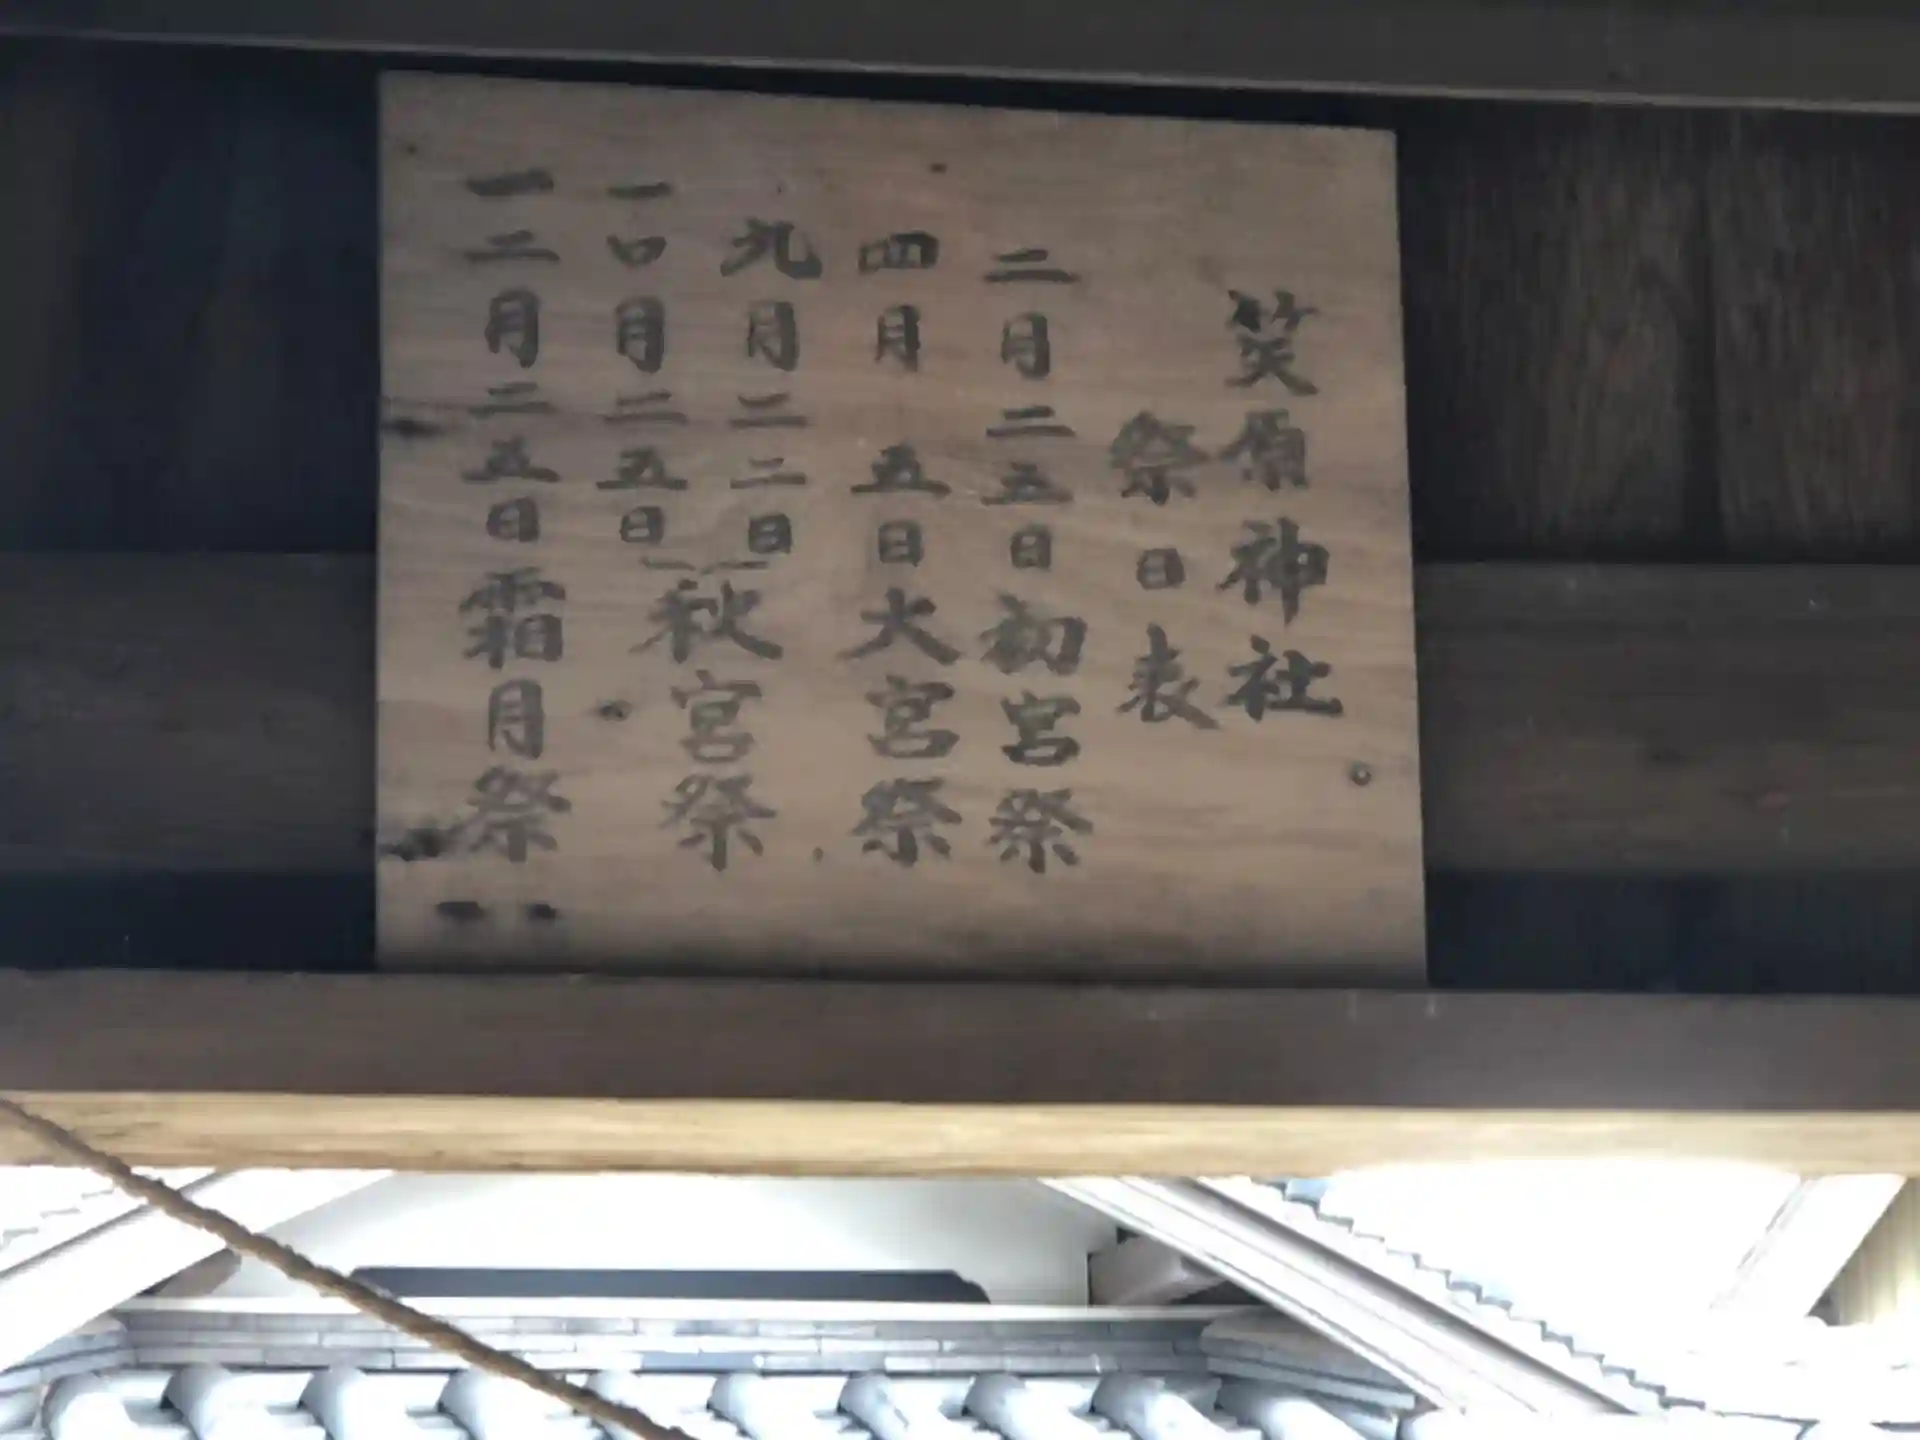 笑原神社
祭日表
二月二五日初宮祭
四月五日大宮祭
九月二二日
一〇月二五日
秋宮祭
一二月二五日霜月祭